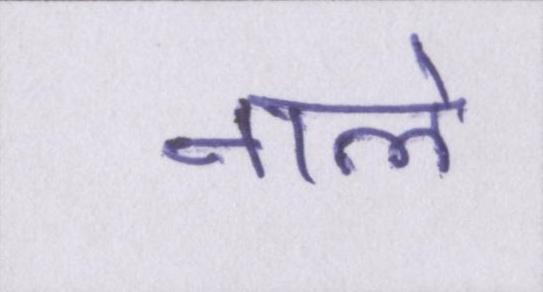 नाले